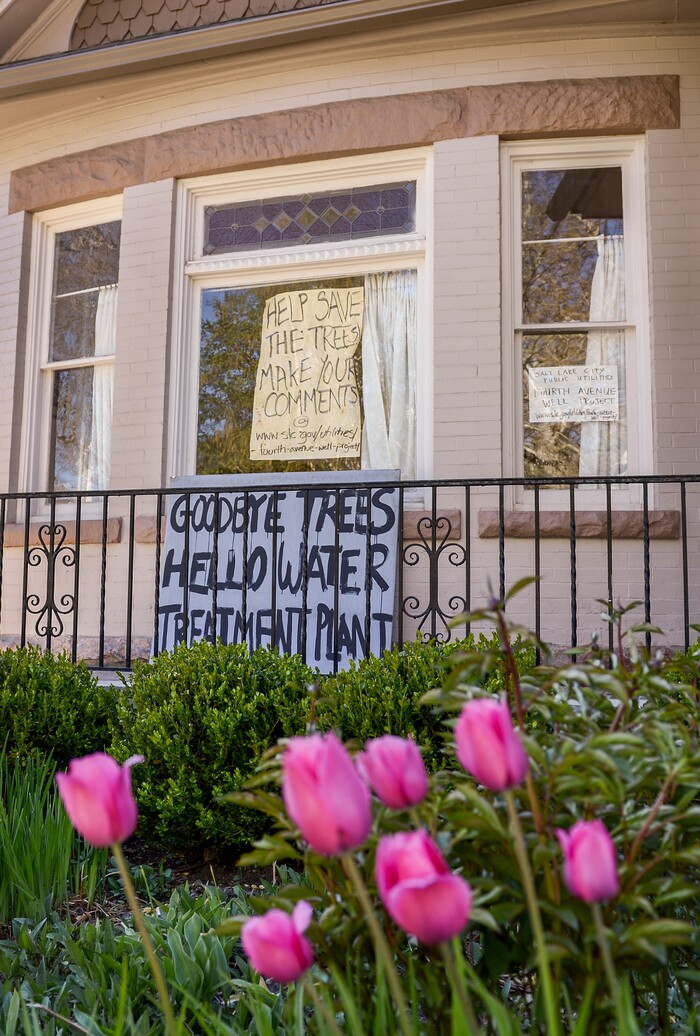 HELP SAVE
THE TREES
MAKE YOUR
COMMENTS
@
www.slc.gov/utilities/
-fourth-avenue-well-project/
SALT LAKE CITY
PUBLIC UTILITIES
FOURTH AVENUE
WELL PROJECT
GOODBYE TREES
HELLO WATER
TREATMENT PLANT